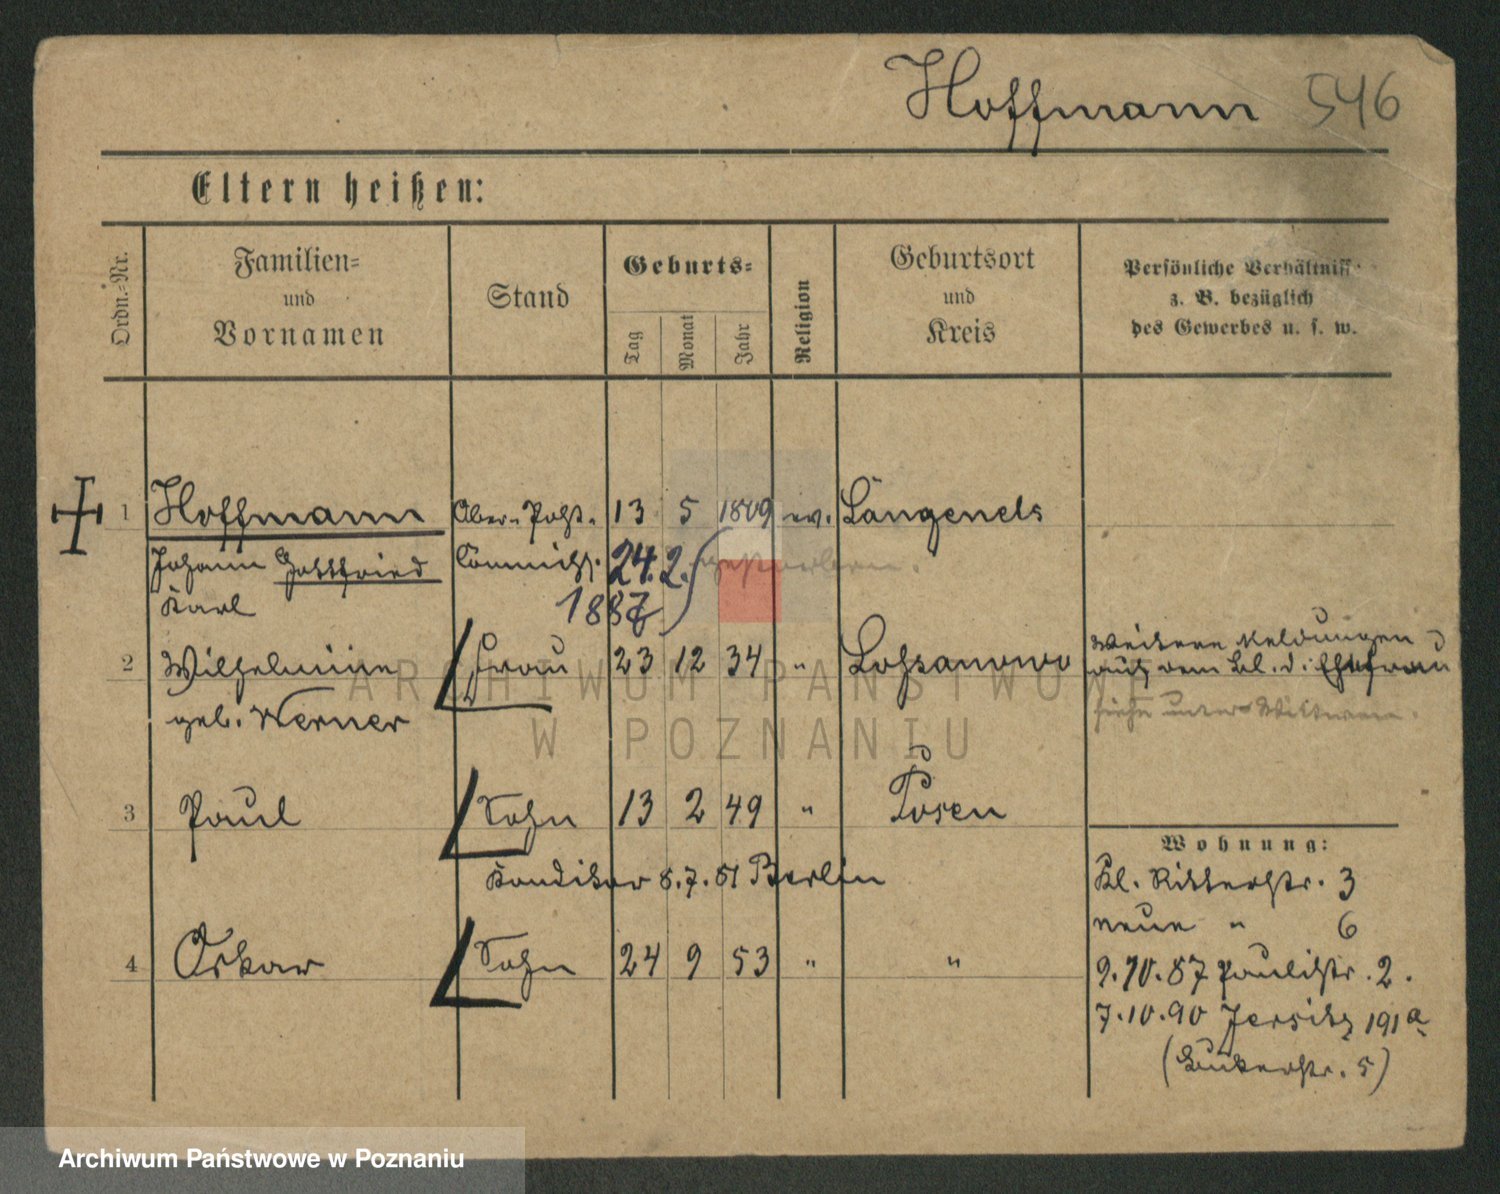 Hoffmann 546
Eltern heißen:
Ordn.-Nr.
Familien-
und
Vornamen
Stand
Geburts-
Tag
Monat
Jahr
Religion
Geburtsort
und
Kreis
Persönliche Verhältniss
z. B. bezüglich
des Gewerbes u. s. w.
1 Hoffmann Ober-Post- 13 5 1809 ev. Längenels
Johann Gottfried Commiss. 24.2. gestorben.
Karl 1887
2 Wilhelmine Frau 23 12 34 " Lossanowo
geb. Werner
weitere Meldungen
auf dem Bl. d. Ehefrau
siehe unter Wittwen.
3 Paul Sohn 13 2 49 " Posen
Konditor 8.7.81 Berlin
4 Oskar Sohn 24 9 53 " "
Wohnung:
Kl. Ritterstr. 3
neue " 6
9.10.87 Paulistr. 2.
7.10.90 Jersitz 191a
(Bukerstr. 5)
ARCHIWUM PAŃSTWOWE
W POZNANIU
Archiwum Państwowe w Poznaniu